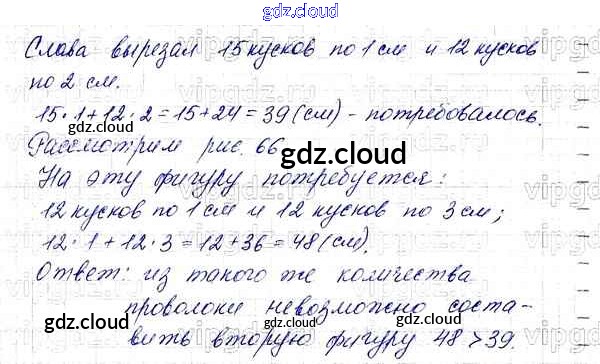 gdz.cloud
Слава вырезал 15 кусков по 1 см и 12 кусков
по 2 см.
15·1+12·2=15+24=39(см) - потребовалось.
gdz.cloud gdz.cloud
Рассмотрим рис. 66
gdz.cloud
На эту фигуру потребуется:
12 кусков по 1 см и 12 кусков по 3 см;
12·1+12·3=12+36=48(см).
gdz.cloud gdz.cloud
Ответ: из такого же количества
проволоки невозможно соста-
gdz.cloud gdz.cloud
вить вторую фигуру 48>39.